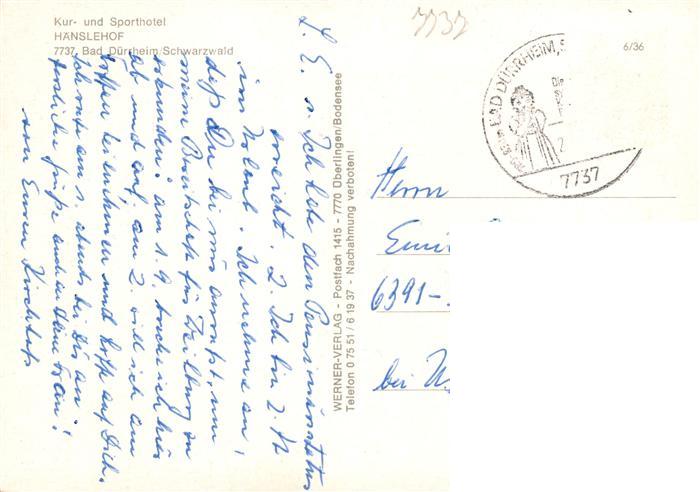 Kur- und Sporthotel
HÄNSLEHOF
7737 Bad Dürrheim/Schwarzwald
7737
6/36
BAD DÜRRHEIM,
7737
L. E. Ich habe den Pensionärsstatus
erreicht. 2. Ich bin z. Zt
im Urlaub. Ich nehme an,
daß Du bei uns warst, um
meine Bereitschaft für Weilburg zu
erkunden. Am 1.9. tauche ich hier
ab und auf, am 2. will ich am
Treffen teilnehmen und hoffe auf Dich.
Ich rufe am 1. abends bei Dir an.
Herzliche Grüße auch an Deine Frau!
von Eurem
WERNER-VERLAG - Postfach 1415 - 7770 Überlingen/Bodensee
Telefon 0 75 51 / 6 19 37 - Nachahmung verboten!
Herrn
6391-
bei